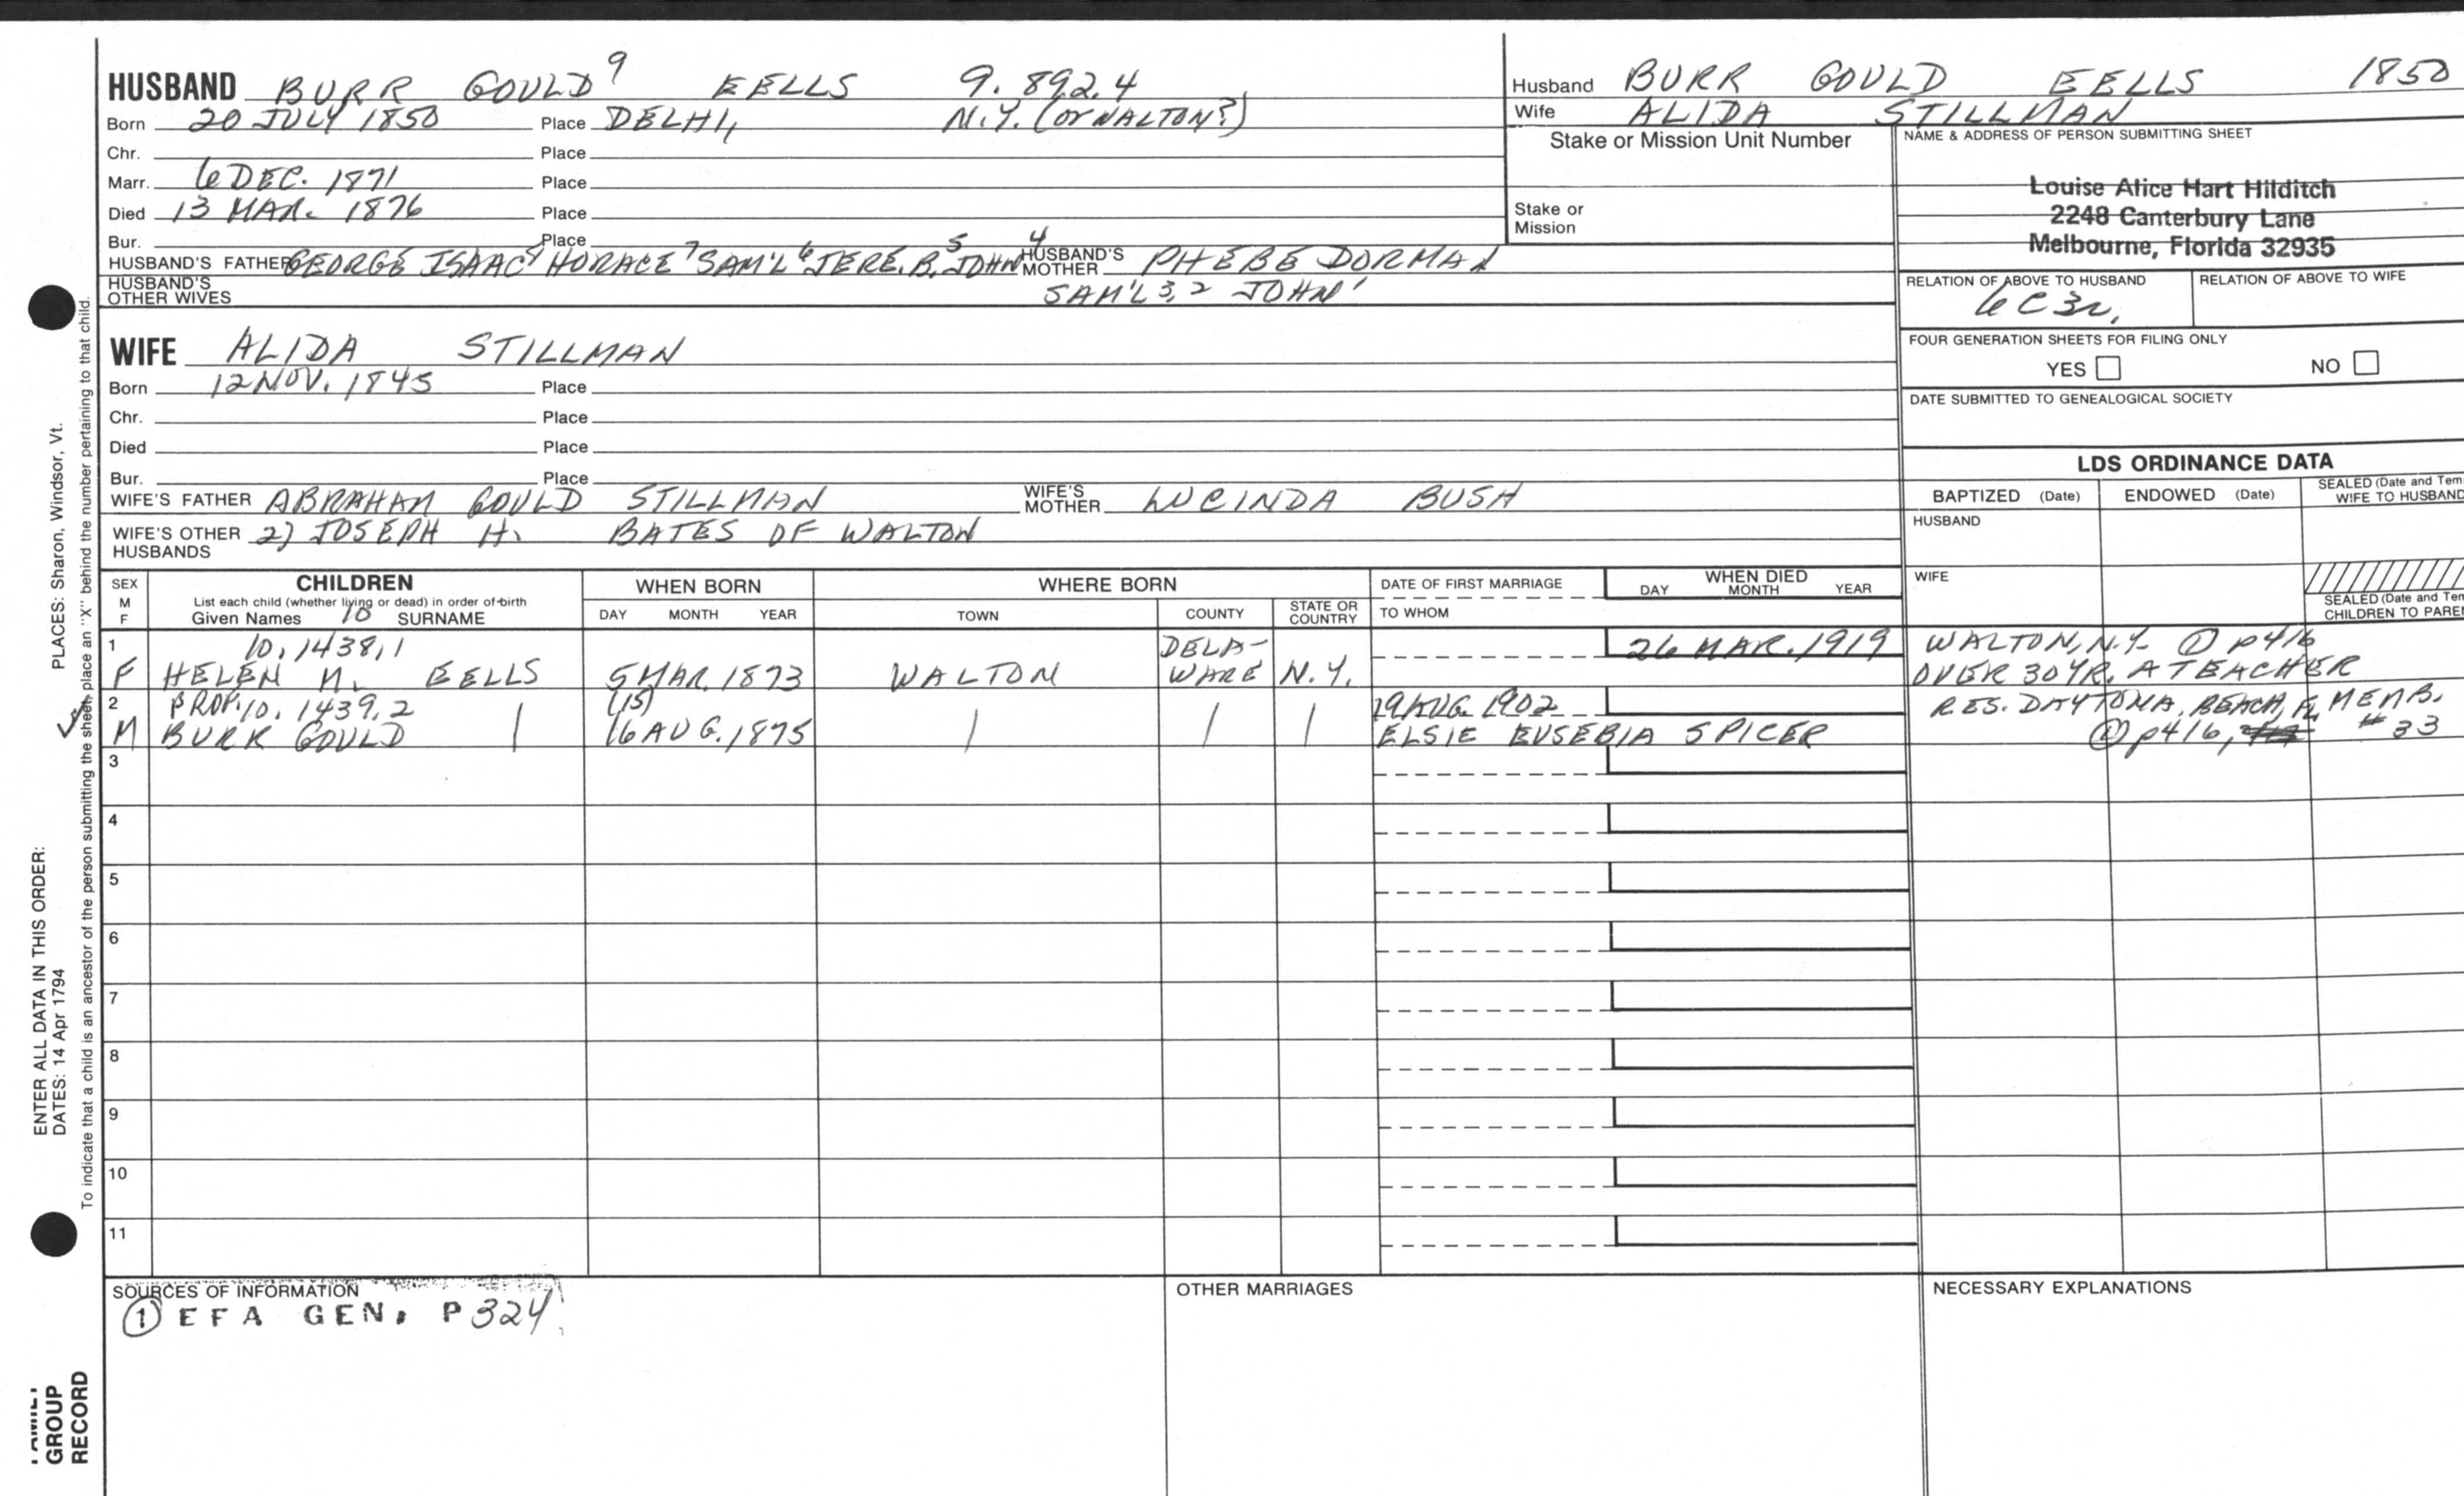 HUSBAND BURR GOULD⁹ EELLS 9.892.4
Born 20 JULY 1850 Place DELHI, N.Y. (or WALTON?)
Chr. Place
Marr. 6 DEC. 1871 Place
Died 13 MAR. 1876 Place
Bur. Place
HUSBAND'S FATHER GEORGE ISAAC⁸ HORACE⁷ SAM'L⁶ JERE. B.⁵ JOHN⁴ HUSBAND'S MOTHER PHEBE DORMAN
HUSBAND'S OTHER WIVES SAM'L 3,2 JOHN¹
WIFE ALIDA STILLMAN
Born 12 NOV. 1845 Place
Chr. Place
Died Place
Bur. Place
WIFE'S FATHER ABRAHAM GOULD STILLMAN WIFE'S MOTHER LUCINDA BUSH
WIFE'S OTHER HUSBANDS 2) JOSEPH H. BATES OF WALTON
Husband BURR GOULD EELLS 1850
Wife ALIDA STILLMAN
Stake or Mission Unit Number
Stake or
Mission
NAME & ADDRESS OF PERSON SUBMITTING SHEET
Louise Alice Hart Hilditch
2248 Canterbury Lane
Melbourne, Florida 32935
RELATION OF ABOVE TO HUSBAND RELATION OF ABOVE TO WIFE
6C3r,
FOUR GENERATION SHEETS FOR FILING ONLY
YES NO
DATE SUBMITTED TO GENEALOGICAL SOCIETY
LDS ORDINANCE DATA
BAPTIZED (Date) ENDOWED (Date) SEALED (Date and Tem
WIFE TO HUSBAND
HUSBAND
WIFE
SEALED (Date and Tem
CHILDREN TO PARE
SEX
M
F
CHILDREN
List each child (whether living or dead) in order of birth
Given Names 10 SURNAME
WHEN BORN
DAY MONTH YEAR
WHERE BORN
TOWN COUNTY STATE OR COUNTRY
DATE OF FIRST MARRIAGE
TO WHOM
WHEN DIED
DAY MONTH YEAR
1 10.1438.1 DELA- 26 MAR. 1919 WALTON, N.Y. ① p416
F HELEN M. EELLS 5 MAR. 1873 WALTON WARE N.Y. OVER 30 YR. A TEACHER
2 PROP. 10.1439.2 (15) 19 AUG. 1902 RES. DAYTONA BEACH, FL MEMB.
M BURR GOULD | 16 AUG. 1875 | | | ELSIE EUSEBIA SPICER ① p416, #33
3
4
5
6
7
8
9
10
11
SOURCES OF INFORMATION
① EFA GEN, P 324
OTHER MARRIAGES
NECESSARY EXPLANATIONS
PLACES: Sharon, Windsor, Vt.
ENTER ALL DATA IN THIS ORDER:
DATES: 14 Apr 1794
To indicate that a child is an ancestor of the person submitting the sheet, place an "X" behind the number pertaining to that child.
GROUP
RECORD